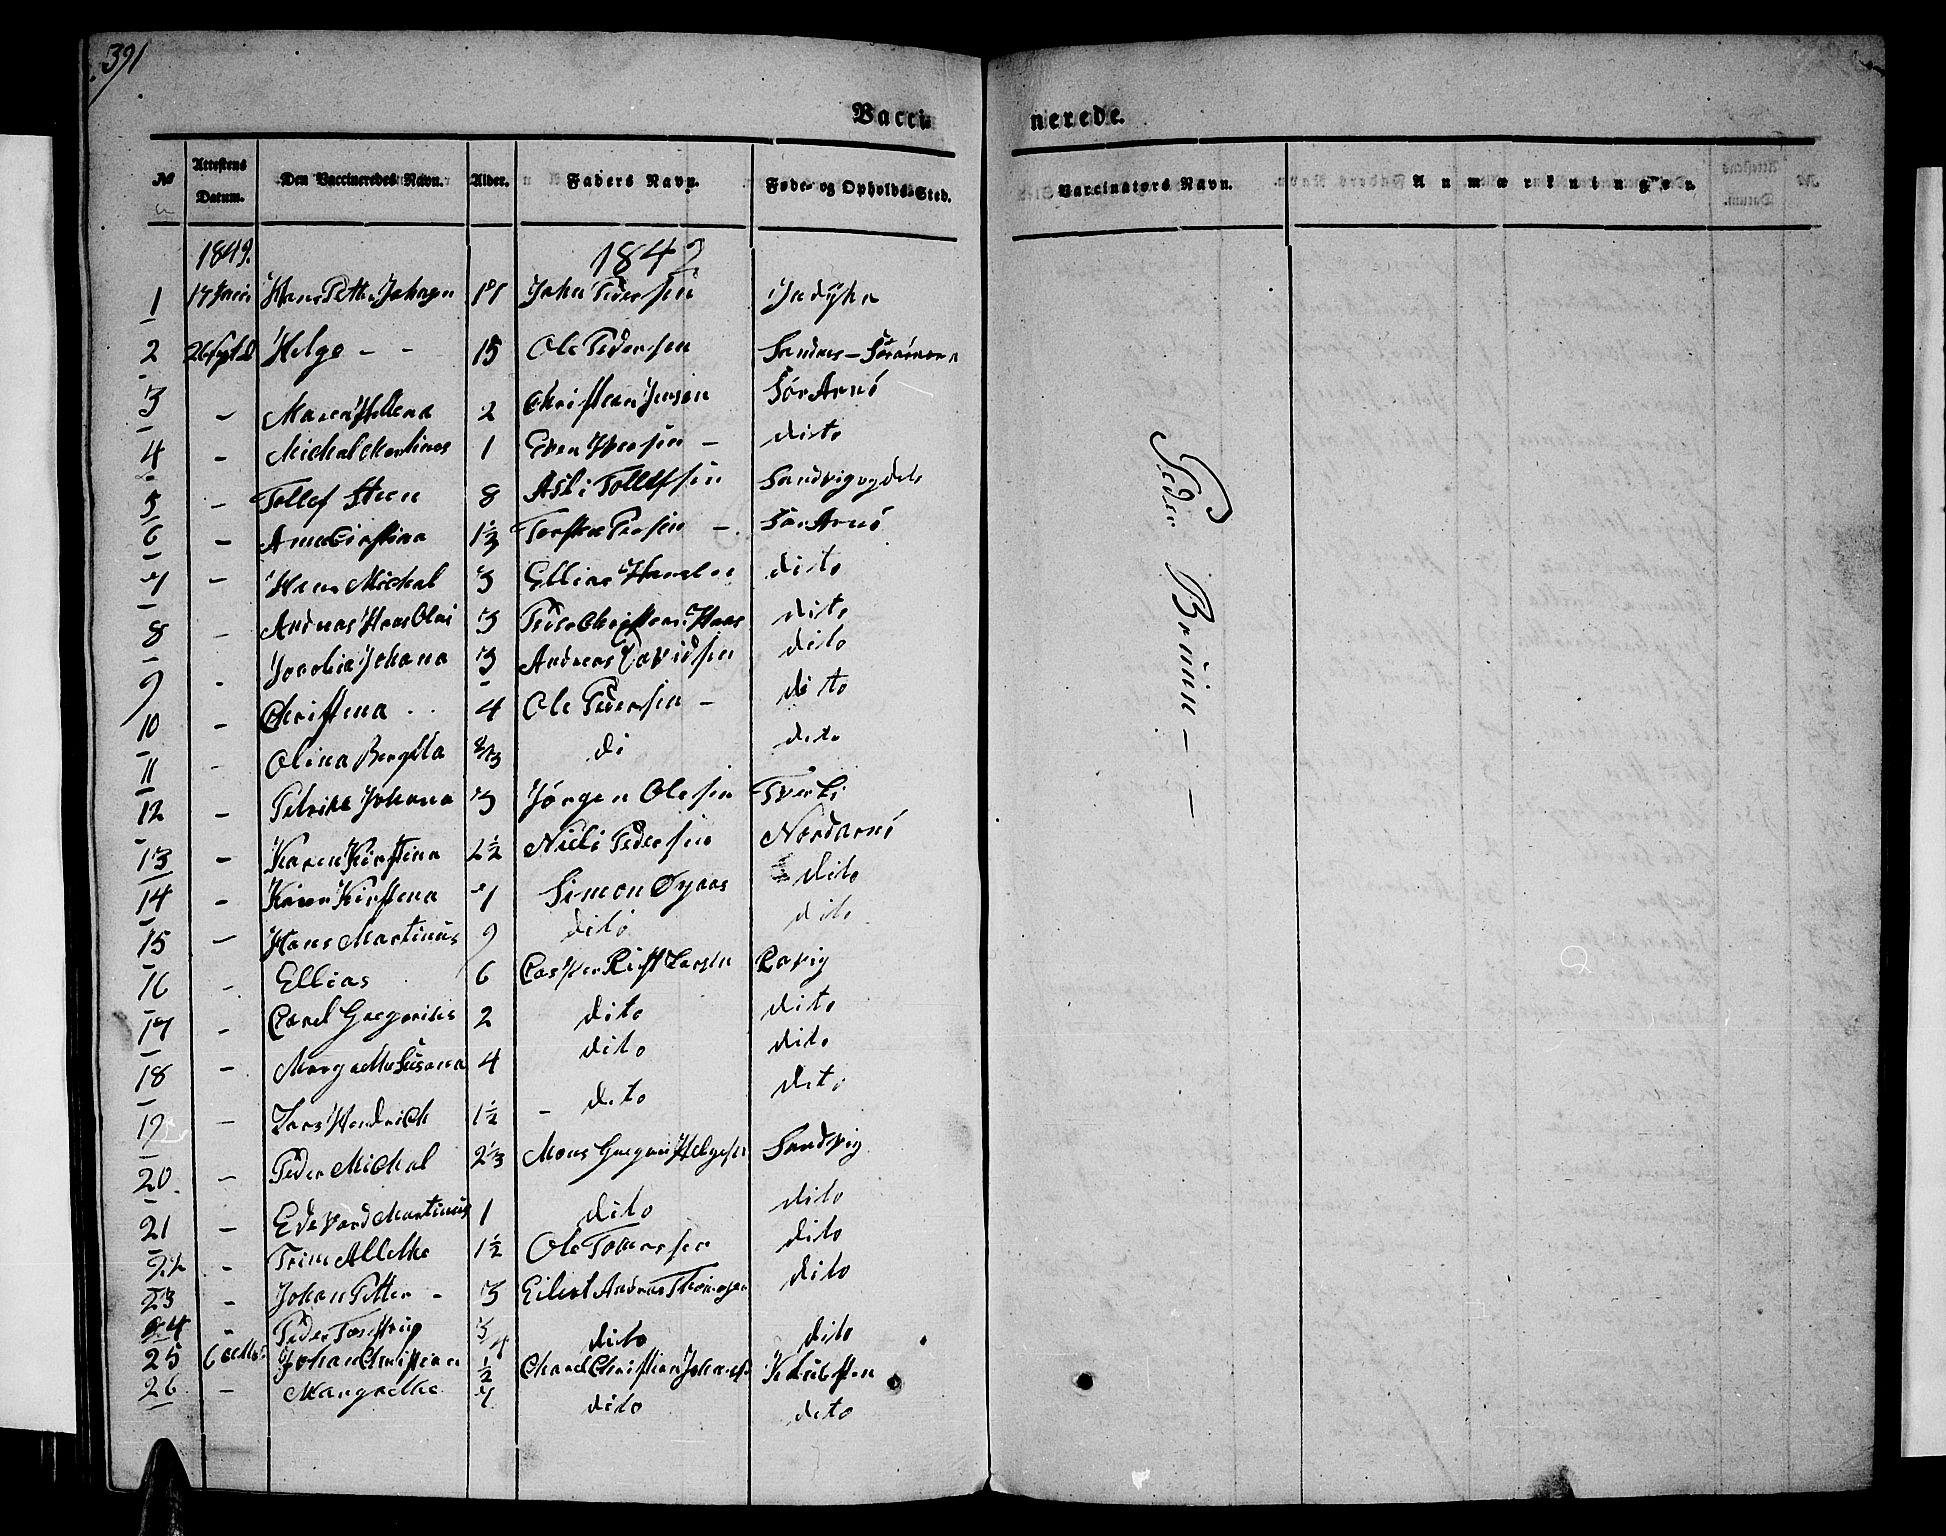 391
Vacci nerede.
No Attestens Datum. Den Vaccineredes Navn. Alder. Faders Navn. Føde- og Opholds-Sted. Vaccinators Navn. Anmærkninger.
1849. 1849
1 17 Hans Petter Johnsen John Pedersen Indyhr
2 26 Helge - - 15 Ole Pedersen Sandnes -
3 - Maren Hellena 2 Christian Jensen Sør Arnö
4 - Michal Martinus 1 Even Iversen - dito
5 - Tollef Steen 8 Asli Tollefsen
6 - Ane Cirstina 1⅓ Persen - Sør Arnö
7 - Hans Michal 3 Ellias Hansen dito
8 - Andreas Hans Olai 3 Peder Christian Hans dito
9 - Jacobia Johana 3 Andreas Davidsen dito
10 - Christena - - 4 Ole Pedersen - dito
11 - Olina Bergitta di dito
12 - Petrika Johana 3 Jørgen Olesen
13 - Karen Kirstina 2½ Nicli Pedersen Nordarnö
14 - Karen Kirstena 7 Simon dito
15 - Hans Martinus 9 dito dito
16 - Ellias 6 Casper Rist Larsen
17 - Carel Gregorius 2 dito dito
18 - Margrethe Susana 4 dito dito
19 - Lars Hendrich 1½ - dito dito
20. - Peder Michal 2⅓ Mons Gregori Helgesen Sandvig
21 - Edevard Martinus 1 dito dito
22 - Trine Alletke 1½ Ole dito
23 - Johan Petter - 3 Eilert Andreas Thomesen dito
24 - Peder dito dito
25 6 Johan Christian ½ Charel Christian
26 - Margrethe 7 dito dito
Peder Brüun - -